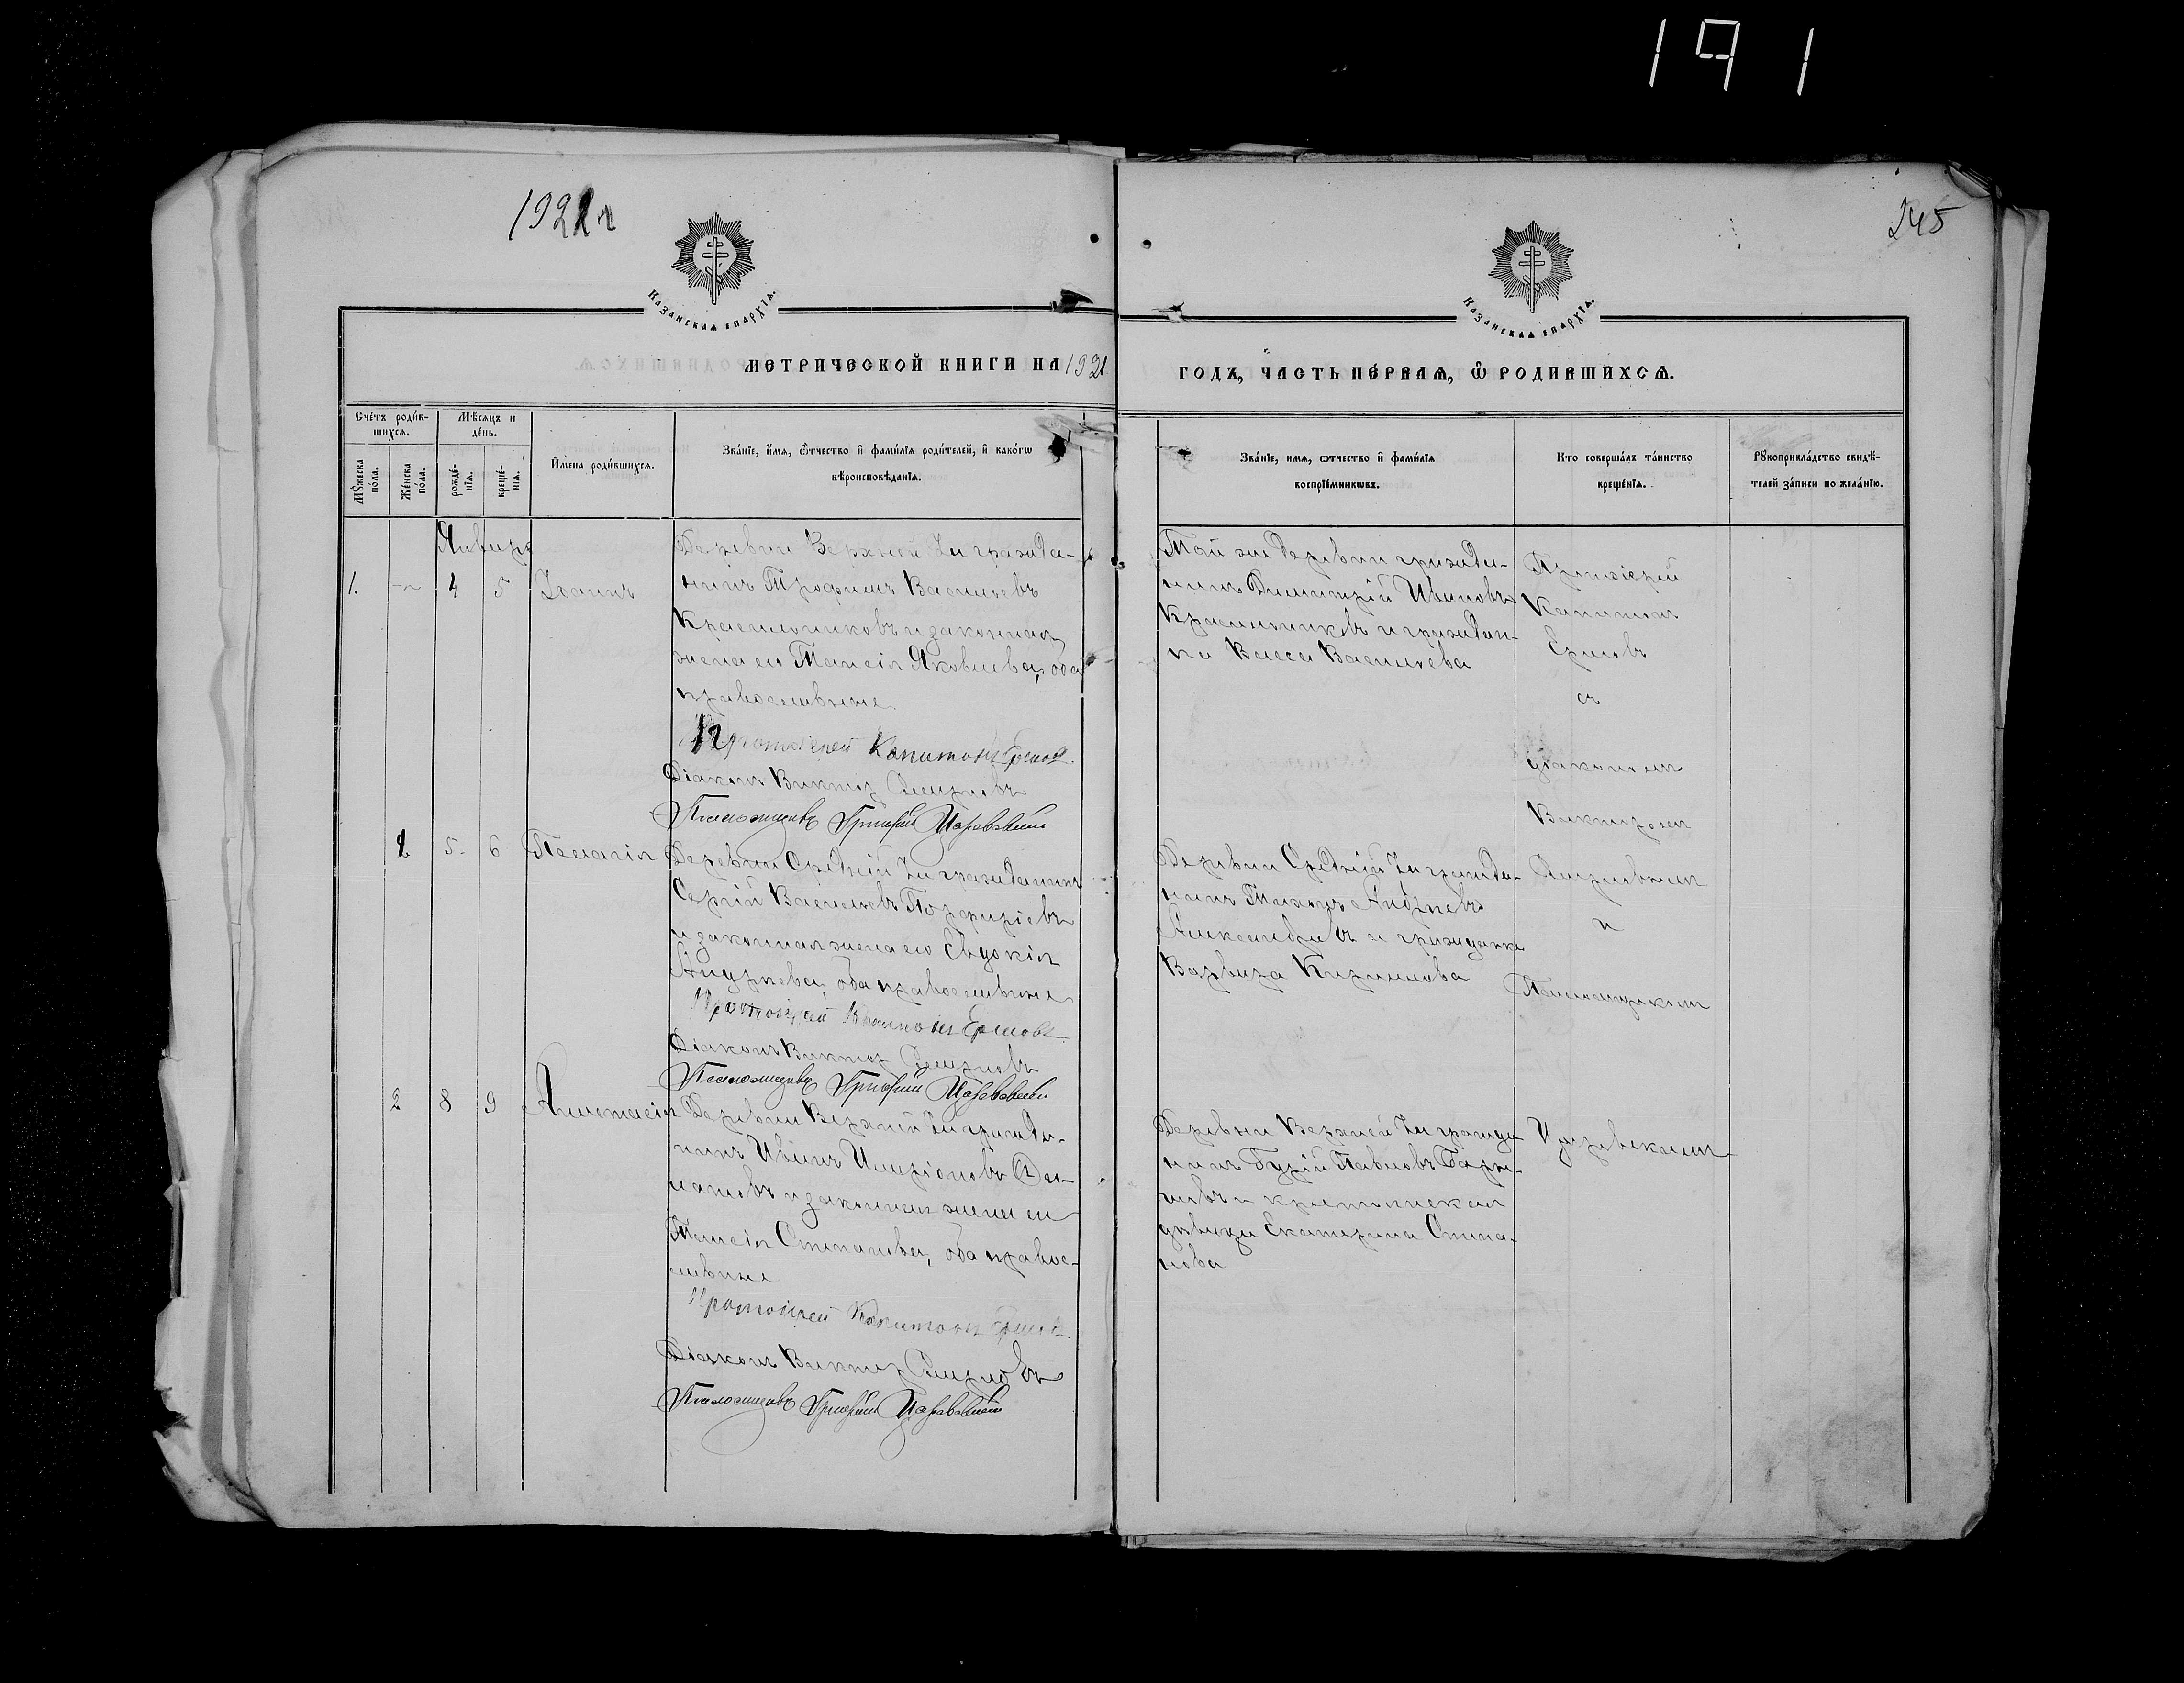 191
1921 г
245
Казанская епархіѧ.
Казанская епархіѧ.
МЕТРИЧЕСКОЙ КНИГИ НА 1921
ГОДЪ, ЧАСТЬ ПЕ́РВАѦ, Ѡ РОДИВШИХСѦ.
Сче́тъ роди́в-
шихсѧ.
Мѣ́сѧцъ и
де́нь.
Мꙋ́жеска
по́ла.
Же́нска
по́ла.
рожде́-
нїѧ.
креще́-
нїѧ.
И҆́мена роди́вшихсѧ.
Зва́нїе, и҆́мѧ, ѻ҆́тчество и҆ фами́лїѧ роди́телей, и҆ како́гѡ
вѣроисповѣ́данїѧ.
Зва́нїе, имѧ, ѻтчество и҆ фами́лїѧ
воспрїе́мникѡвъ.
Кто соверша́лъ та́инство
креще́нїѧ.
Рꙋкоприкла́дство свидѣ́-
телей за́писи по жела́нїю.
Январь
1. 4 5 Іоаннъ
Деревни Верхней гражда-
нинъ Трофимъ Васильевъ
Красильниковъ и законная
жена его Таисія Яковлева, оба
православные.
Протоіерей Капитонъ Ершовъ.
Діаконъ Викторъ Смирновъ
Псаломщикъ Григорій
Той же деревни гражда-
нинъ Димитрій Ивановъ
Красильниковъ и граждан-
ка Васса Васильева
Протоіерей
Капитонъ
Ершовъ
съ
діакономъ
Викторомъ
Смирновымъ
и
Псаломщикомъ
1 5 6 Пелагія
Деревни Средней гражданинъ
Сергій Васильевъ Порфиріевъ
и законная жена его Евдокія
Андреева, оба православные
Протоіерей Капитонъ Ершовъ.
Діаконъ Викторъ Смирновъ
Псаломщикъ Григорій
Деревни Средней гражда-
нинъ Андреевъ
Александровъ и гражданка
Варвара Кириллова
2 8 9 Анастасія
Деревни Верхней гражда-
нинъ Иванъ Иларіоновъ
и законная жена его
Таисія Степанова, оба правос-
лавные
Протоіерей Капитонъ Ершовъ.
Діаконъ Викторъ Смирновъ
Псаломщикъ Григорій
Деревни Верхней гражда-
нинъ Гурій Павловъ
и крестьянская
дѣвица Екатерина Степа-
нова